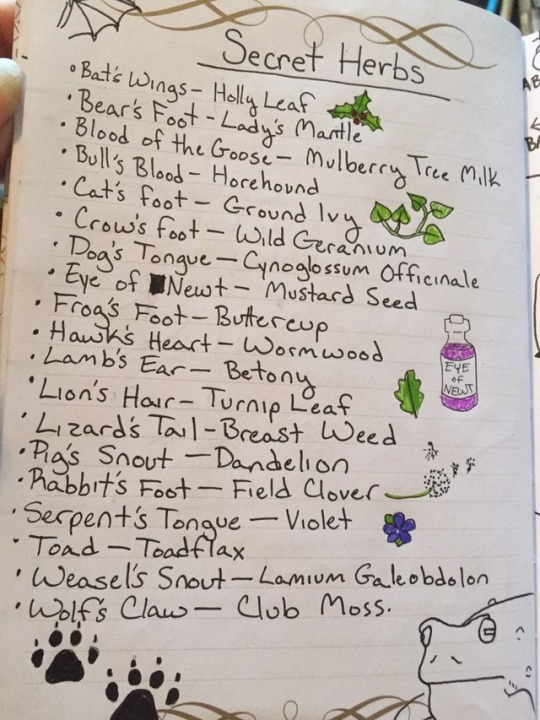 Secret Herbs
• Bat's Wings - Holly Leaf
• Bear's Foot - Lady's Mantle
• Blood of the Goose - Mulberry Tree Milk
• Bull's Blood - Horehound
• Cat's foot - Ground Ivy
• Crow's foot - Wild Geranium
• Dog's Tongue - Cynoglossum Officinale
• Eye of Newt - Mustard Seed
• Frog's Foot - Buttercup
• Hawk's Heart - Wormwood
• Lamb's Ear - Betony
• Lion's Hair - Turnip Leaf
• Lizard's Tail - Breast Weed
• Pig's Snout - Dandelion
• Rabbit's Foot - Field Clover
• Serpent's Tongue - Violet
• Toad - Toadflax
• Weasel's Snout - Lamium Galeobdolon
• Wolf's Claw - Club Moss.
EYE
OF
NEWT